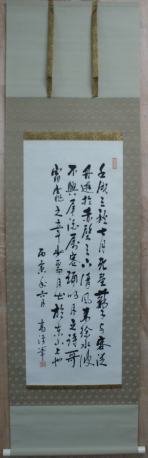 壬戌之秋七月既望蘇子与客泛
舟遊於赤壁之下清風徐来水波
不興举酒属客誦明月之詩歌
窈窕之章少焉月出於東山之上
丙寅年六月